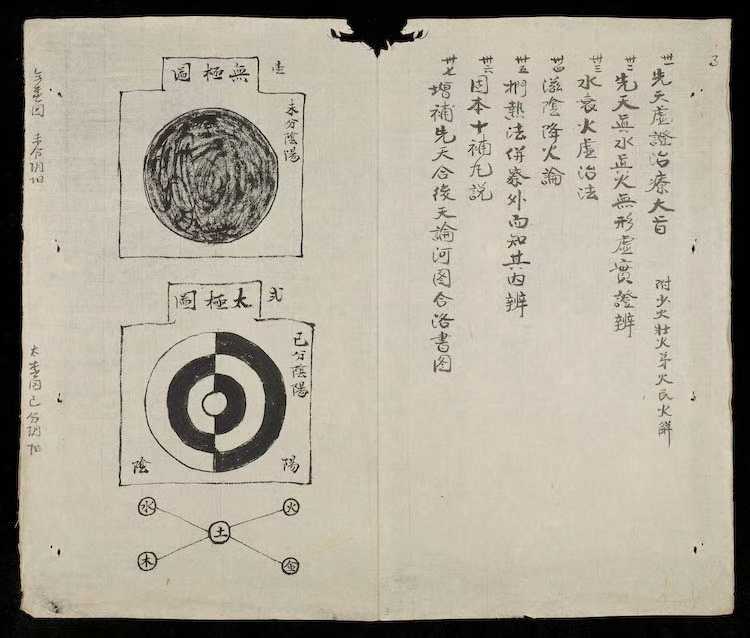 3
卅一 先天虛證治療大旨
卅二 先天眞水眞火無形虛實證辨 附少火壯火君火民火解
卅三 水衰火虛治法
卅四 滋陰降火論
卅五 捫熱法併察外而知其內辨
卅六 固本十補丸説
卅七 增補先天合後天論河图合洛書图
壹
無極圖
未分陰陽
弍
太極圖
已分陰陽
陽
陰
水
火
土
木
金
太极图 已分阴阳